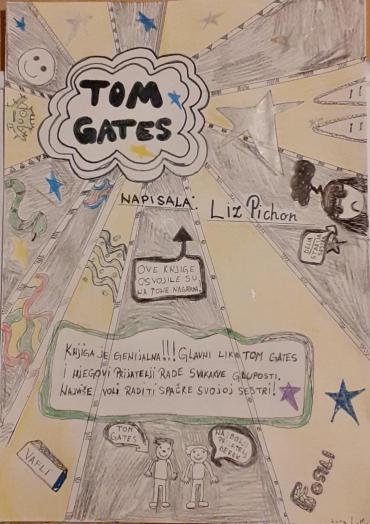 TOM
GATES
NAPISALA: Liz Pichon
DELIA
STARIJA
OVE KNJIGE
OSVOJILE SU
NA TONE NAGRADA
KNJIGA JE GENIJALNA!!! GLAVNI LIK TOM GATES
I NJEGOVI PRIJATELJI RADE SVAKAKVE GLUPOSTI.
NAJVIŠE VOLI RADITI SPAČKE SVOJOJ SESTRI!
TOM
GATES
NAJBOLJI
PRIJATELJ
DEREK
VAFLI
FOSILI